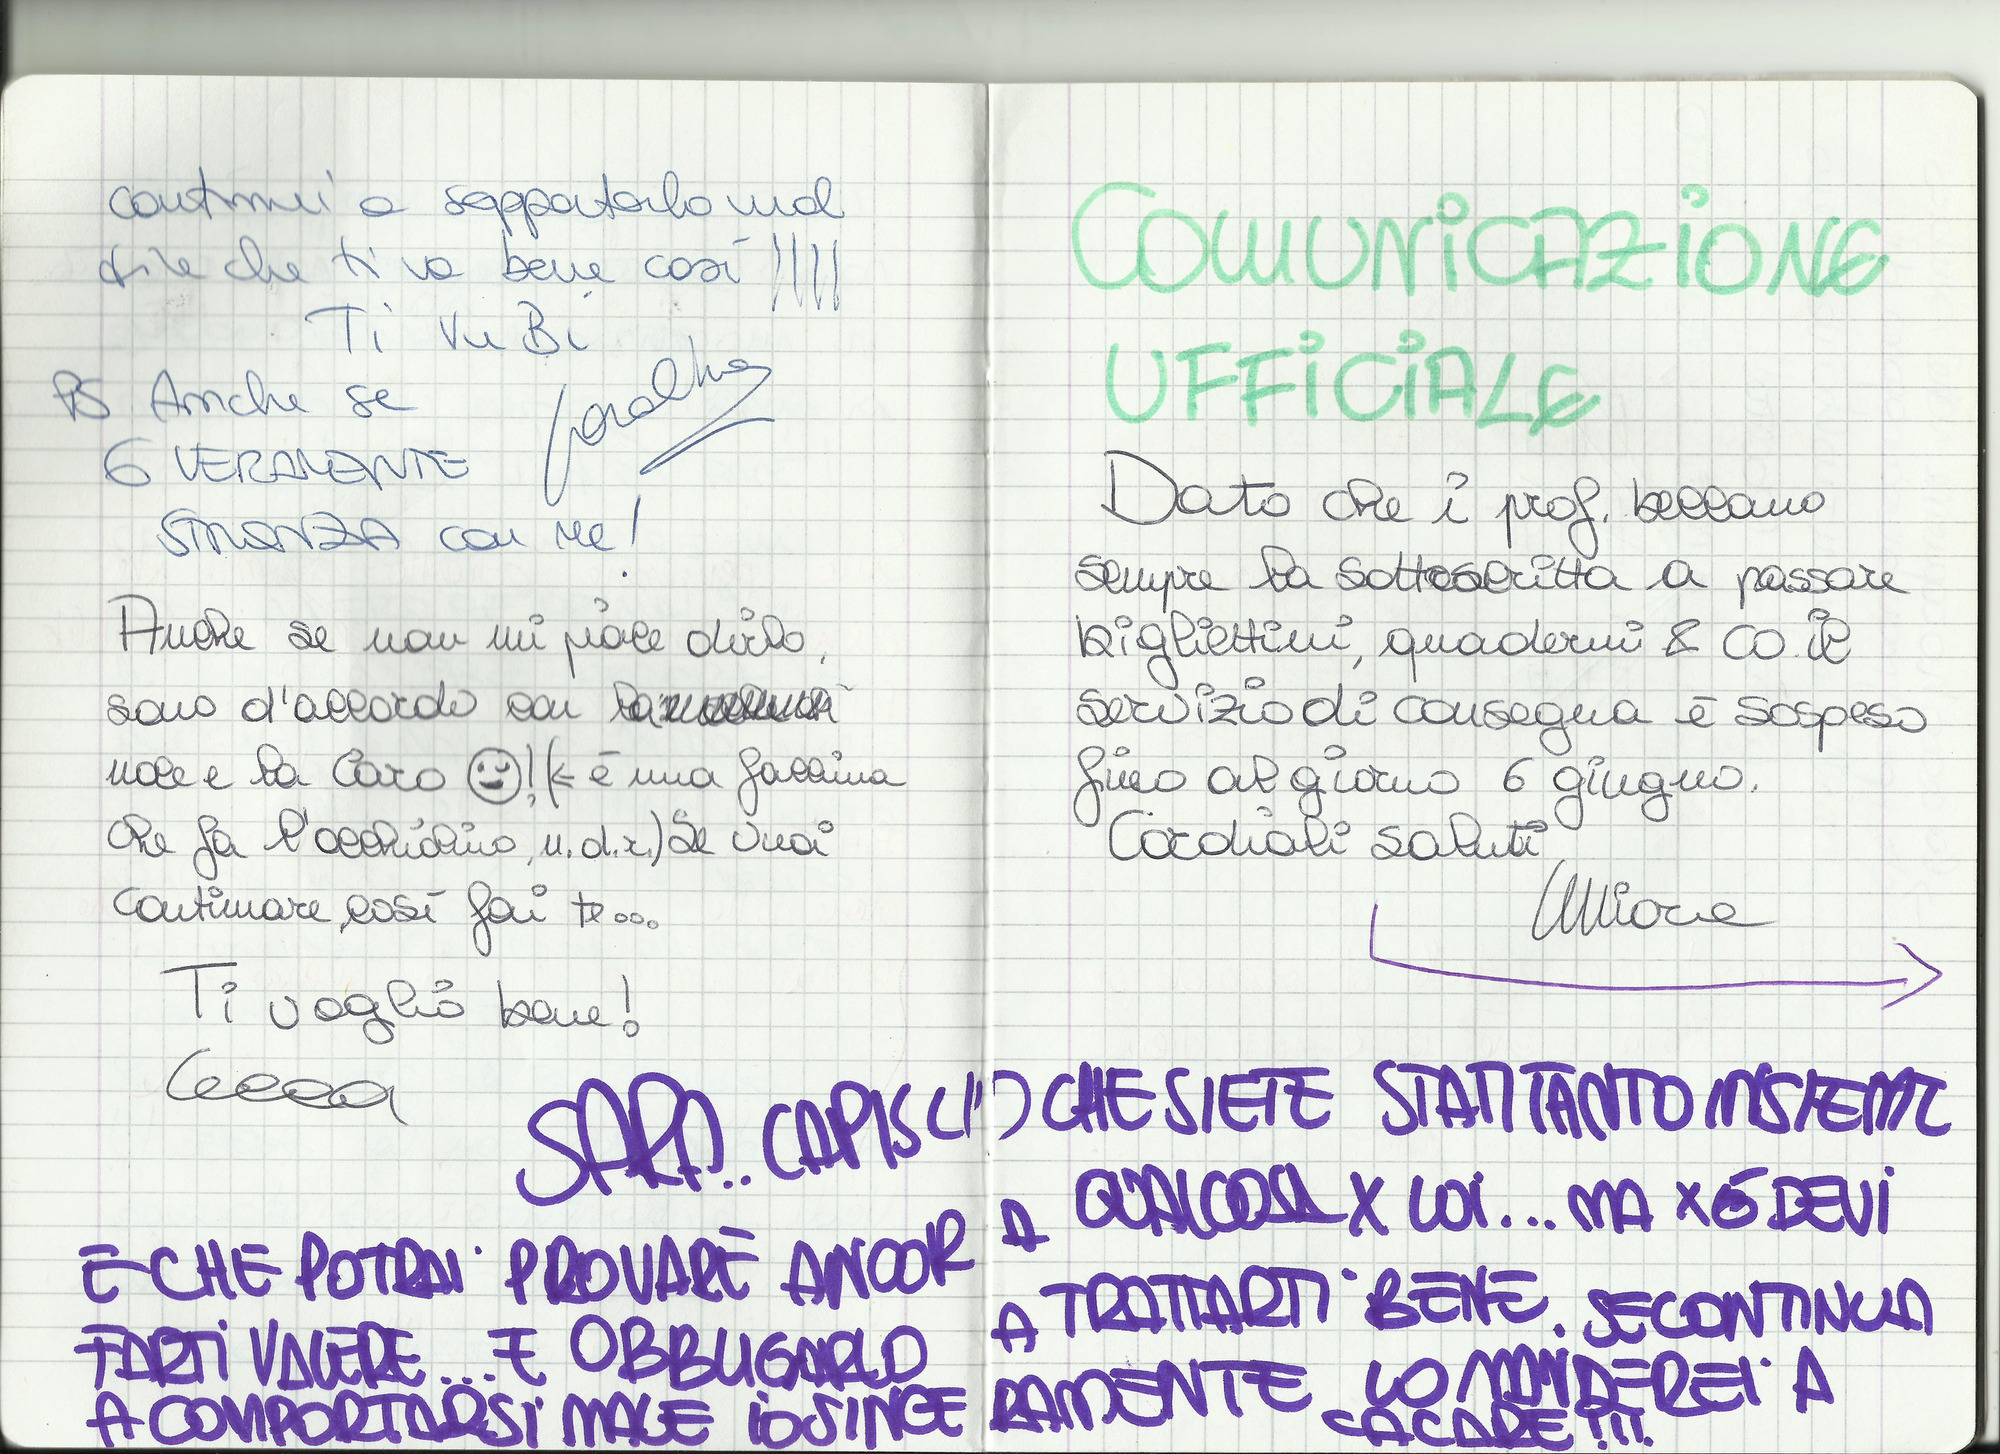 continui a sopportarlo vuol
dire che ti va bene così !!!!
Ti Vu Bi
PS Anche se
6 VERAMENTE
STRONZA con me!
Anche se non mi piace dirlo,
sono d'accordo con la
nole e la Caro !(← è una faccina
che fa l'occhiolino, n.d.r.) Se vuoi
continuare così fai te...
Ti voglio bene!
COMUNICAZIONE
UFFICIALE
Dato che i prof. beccano
sempre la sottoscritta a passare
bigliettini, quaderni & co. il
servizio di consegna è sospeso
fino al giorno 6 giugno.
Cordiali saluti
SARA.. CAPISCO CHE SIETE STATI TANTO INSIEME
E CHE POTRAI PROVARE ANCORA QUALCOSA X LUI... MA X 6 DEVI
FARTI VALERE... E OBBLIGARLO A TRATTARTI BENE. SE CONTINUA
A COMPORTARSI MALE IO SINCERAMENTE LO MANDEREI A
CACARE!!!